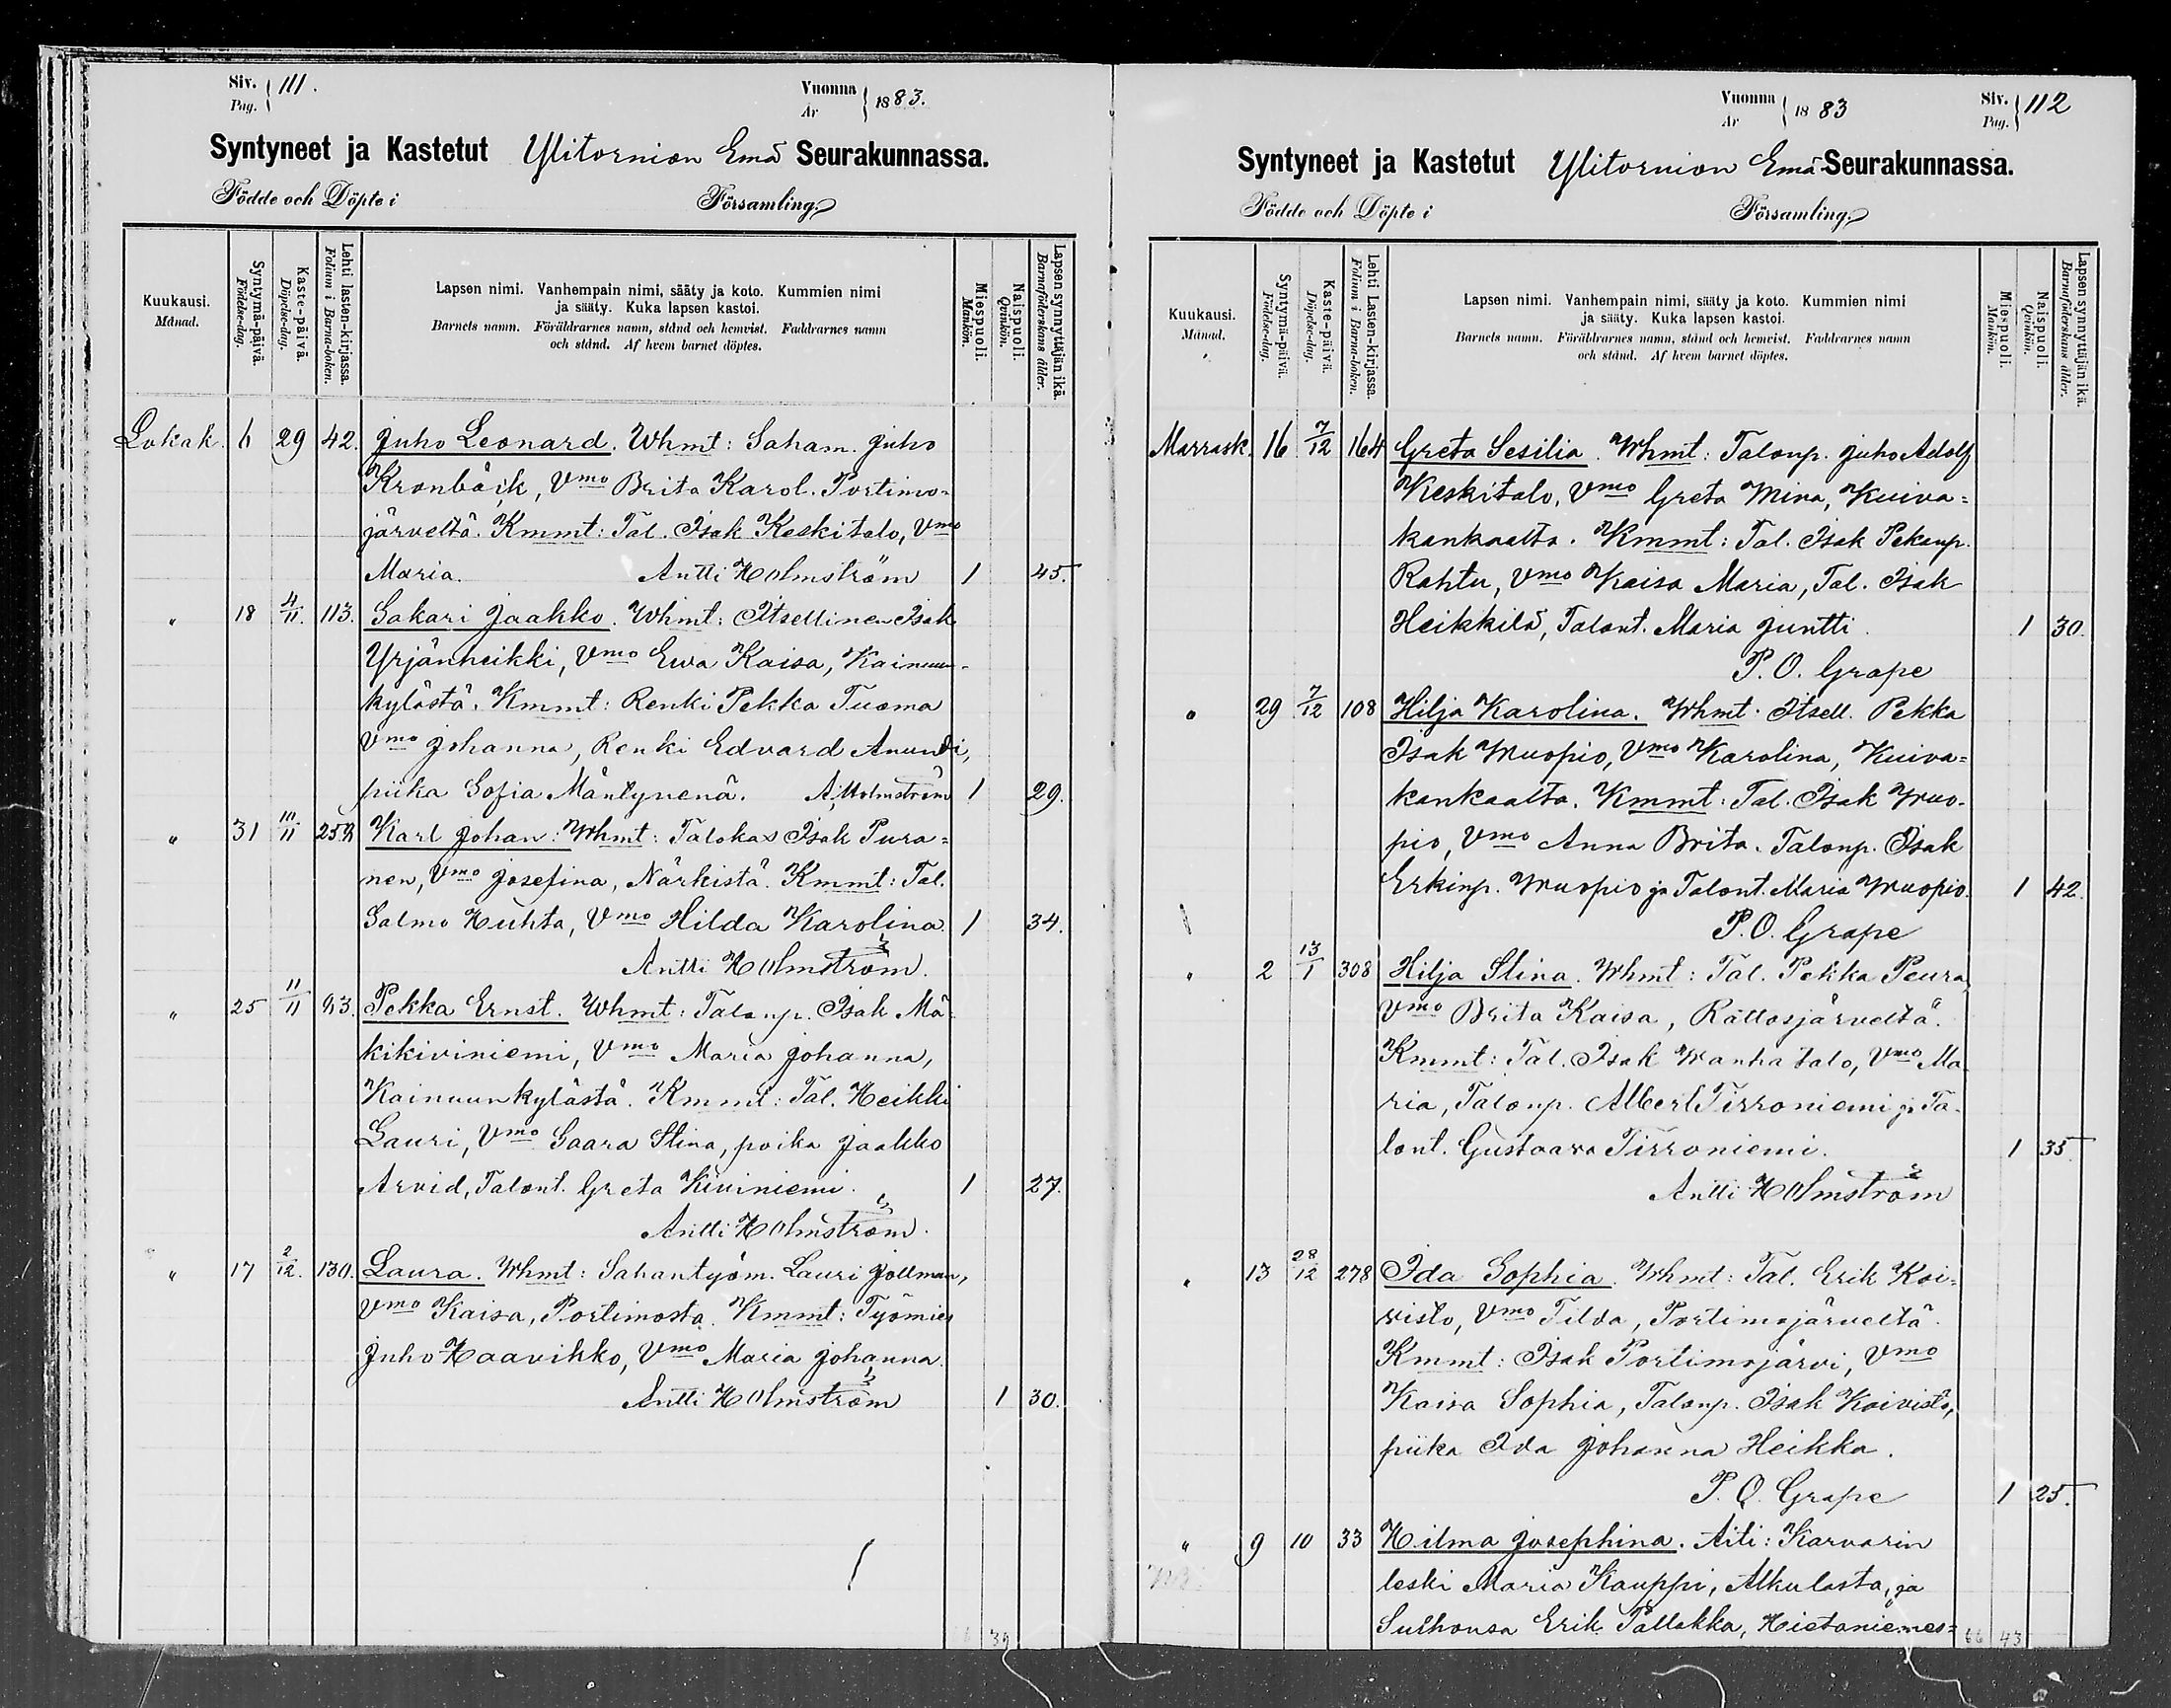 Siv. 111.
Pag.
Vuonna 1883.
År
Syntyneet ja Kastetut Ylitornion Emä Seurakunnassa.
Födde och Döpte i Församling.
Kuukausi.
Månad.
Syntymä-päivä.
Födelse-dag.
Kaste-päivä.
Döpelse-dag.
Lehti lasten-kirjassa.
Folium i Barna-boken.
Lapsen nimi. Vanhempain nimi, sääty ja koto. Kummien nimi
ja sääty. Kuka lapsen kastoi.
Barnets namn. Föräldrarnes namn, stånd och hemvist. Faddrarnes namn
och stånd. Af hvem barnet döptes.
Miespuoli.
Mankön.
Naispuoli.
Qvinkön.
Lapsen synnyttäjän ikä.
Barnaföderskans ålder.
Lokak. 6 29 42. Juho Leonard. Whmt: Saham. Juho
Kronbäck, Vmo Brita Karol. Portimo-
järveltä. Kmmt: Tal. Isak Keskitalo, Vmo
Maria. Antti Holmström 1 45.
" 18 4/11. 113. Sakari Jaakko. Whmt: Itsellinen Isak
Yrjänheikki, Vmo Ewa Kaisa, Kainuun-
kylästä. Kmmt: Renki Pekka Tuoma
Vmo Johanna, Renki Edvard Anundi,
piika Sofia Mäntynenä. A. Holmström 1 29.
" 31 10/11 Karl Johan: Whmt: Talokas Isak Pura=
nen, Vmo Josefina, Närkistä. Kmmt: Tal.
Salmo Huhta, Vmo Hilda Karolina. 1 34.
Antti Holmström.
" 25 11/11 Pekka Ernst. Whmt: Talonp. Isak Mä-
kikiviniemi, Vmo Maria Johanna,
Kainuunkylästä. Kmmt: Tal. Heikki
Lauri, Vmo Saara Stina, poika Jaakko
Arvid, Talont. Greta Kiviniemi. 1 27.
Antti Holmström.
" 17 2/12. 130. Laura. Whmt: Sahantyöm. Lauri Jollman,
Vmo Kaisa, Portimosta. Kmmt: Työmies
Juho Haavikko, Vmo Maria Johanna.
Antti Holmström 1 30.
39
Vuonna 1883
År
Siv. 112
Pag.
Syntyneet ja Kastetut Ylitornion Emä-Seurakunnassa.
Födde och Döpte i Församling.
Kuukausi.
Månad.
Syntymä-päivä.
Födelse-dag.
Kaste-päivä.
Döpelse-dag.
Lehti Lasten-kirjassa.
Folium i Barna-boken.
Lapsen nimi. Vanhempain nimi, sääty ja koto. Kummien nimi
ja sääty. Kuka lapsen kastoi.
Barnets namn. Föräldrarnes namn, stånd och hemvist. Faddrarnes namn
och stånd. Af hvem barnet döptes.
Miespuoli.
Mankön.
Naispuoli.
Qvinkön.
Lapsen synnyttäjän ikä.
Barnaföderskans ålder.
Marrask. 16 7/12 164 Greta Sesilia. Whmt: Talonp. Juho Adolf
Keskitalo, Vmo Greta Mina, Kuiva=
kankaalta. Kmmt: Tal. Isak Pekanp.
Rahtu, Vmo Kaisa Maria, Tal. Isak
Heikkilä, Talont. Maria Juntti. 1 30.
P. O. Grape
" 29 7/12 108 Hilja Karolina. Whmt: Itsell. Pekka
Isak Wuopio, Vmo Karolina, Kuiva=
kankaalta. Kmmt: Tal. Isak Wuo-
pio, Vmo Anna Brita. Talonp. Isak
Erkinp. Wuopio ja Talont. Maria Wuopio. 1 42.
P. O. Grape
" 2 13/1 308 Hilja Stina. Whmt: Tal. Pekka Peura,
Vmo Brita Kaisa, Rattosjärveltä.
Kmmt: Tal. Isak Wanhatalo, Vmo Ma-
ria, Talonp. Albert Tirroniemi ja Ta-
lont. Gustaava Tirroniemi. 1 35.
Antti Holmström
" 13 28/12 278 Ida Sophia. Whmt: Tal. Erik Koi-
visto, Vmo Tilda, Portimojärveltä.
Kmmt: Isak Portimojärvi, Vmo
Kaisa Sophia, Talonp. Isak Koivisto,
piika Ida Johanna Heikka.
P. O. Grape 1 25.
" 9 10 33 Hilma Josephina. Äiti: Karvarin
leski Maria Kauppi, Alkulasta, ja
Sulhonsa Erik Pallakka, Hietaniemes=
66 43